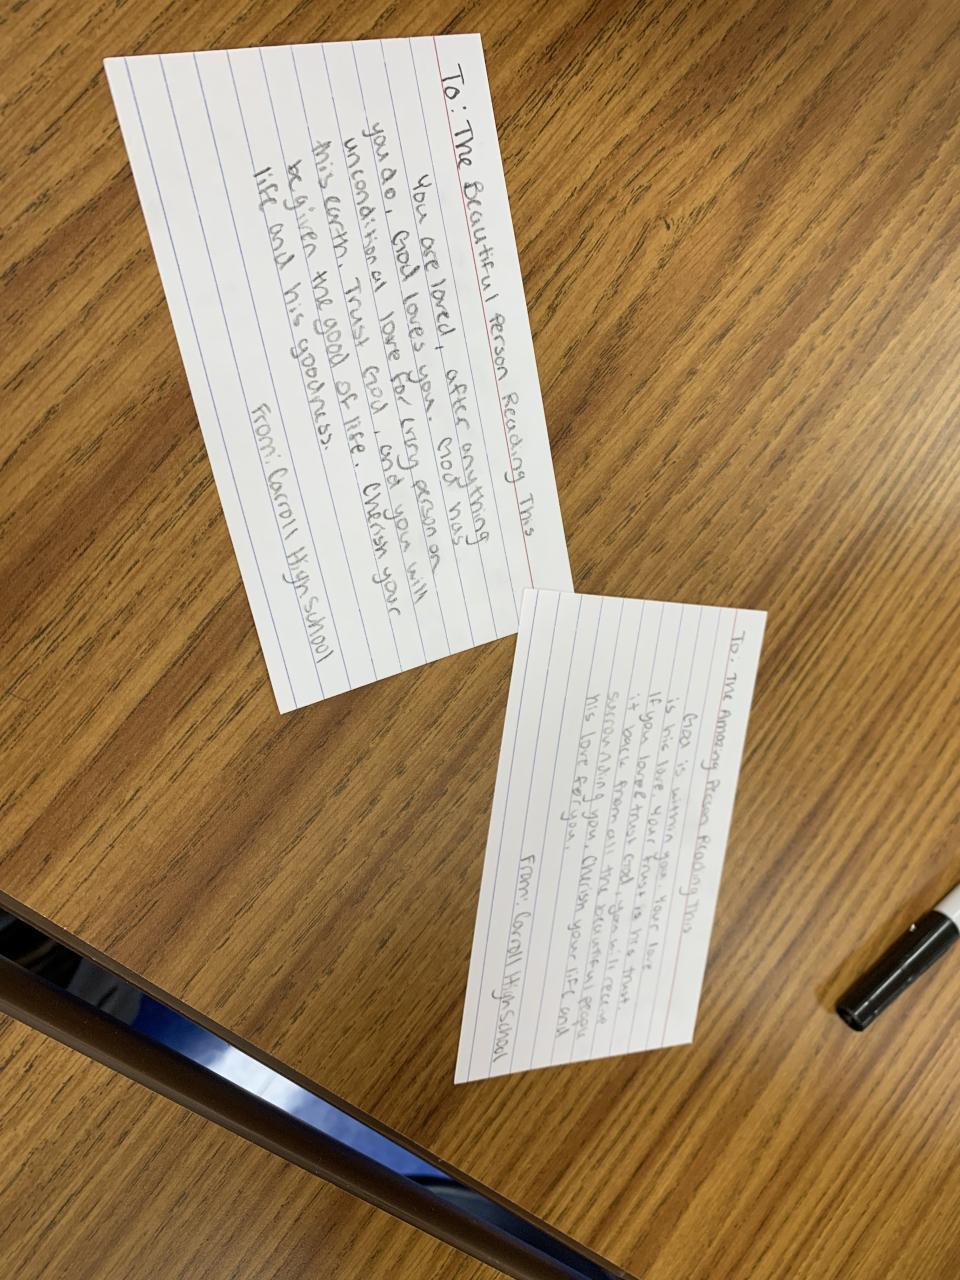 To: The Beautiful Person Reading This
You are loved, after anything
you do, God loves you. God has
unconditional love for every person on
this earth. Trust God, and you will
be given the good of life. Cherish your
life and his goodness.
From: Carroll High School
To: The Amazing Person Reading This
God is within you. Your love
is his love. Your trust is his trust.
If you love & trust God, you will receive
it back from all the beautiful people
surrounding you. Cherish your life and
his love for you.
From: Carroll High School